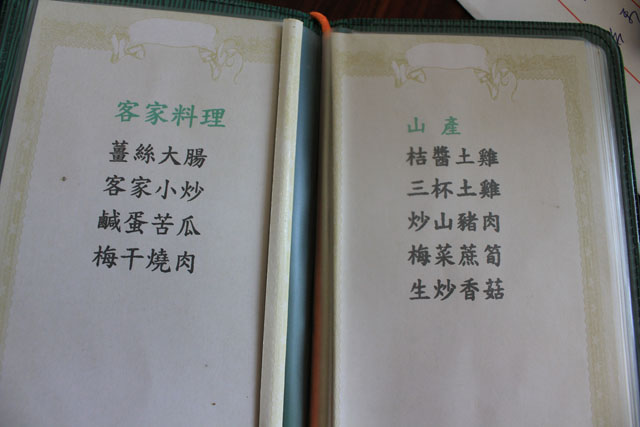 客家料理
薑絲大腸
客家小炒
鹹蛋苦瓜
梅干燒肉
山產
桔醬土雞
三杯土雞
炒山豬肉
梅菜蔗筍
生炒香菇